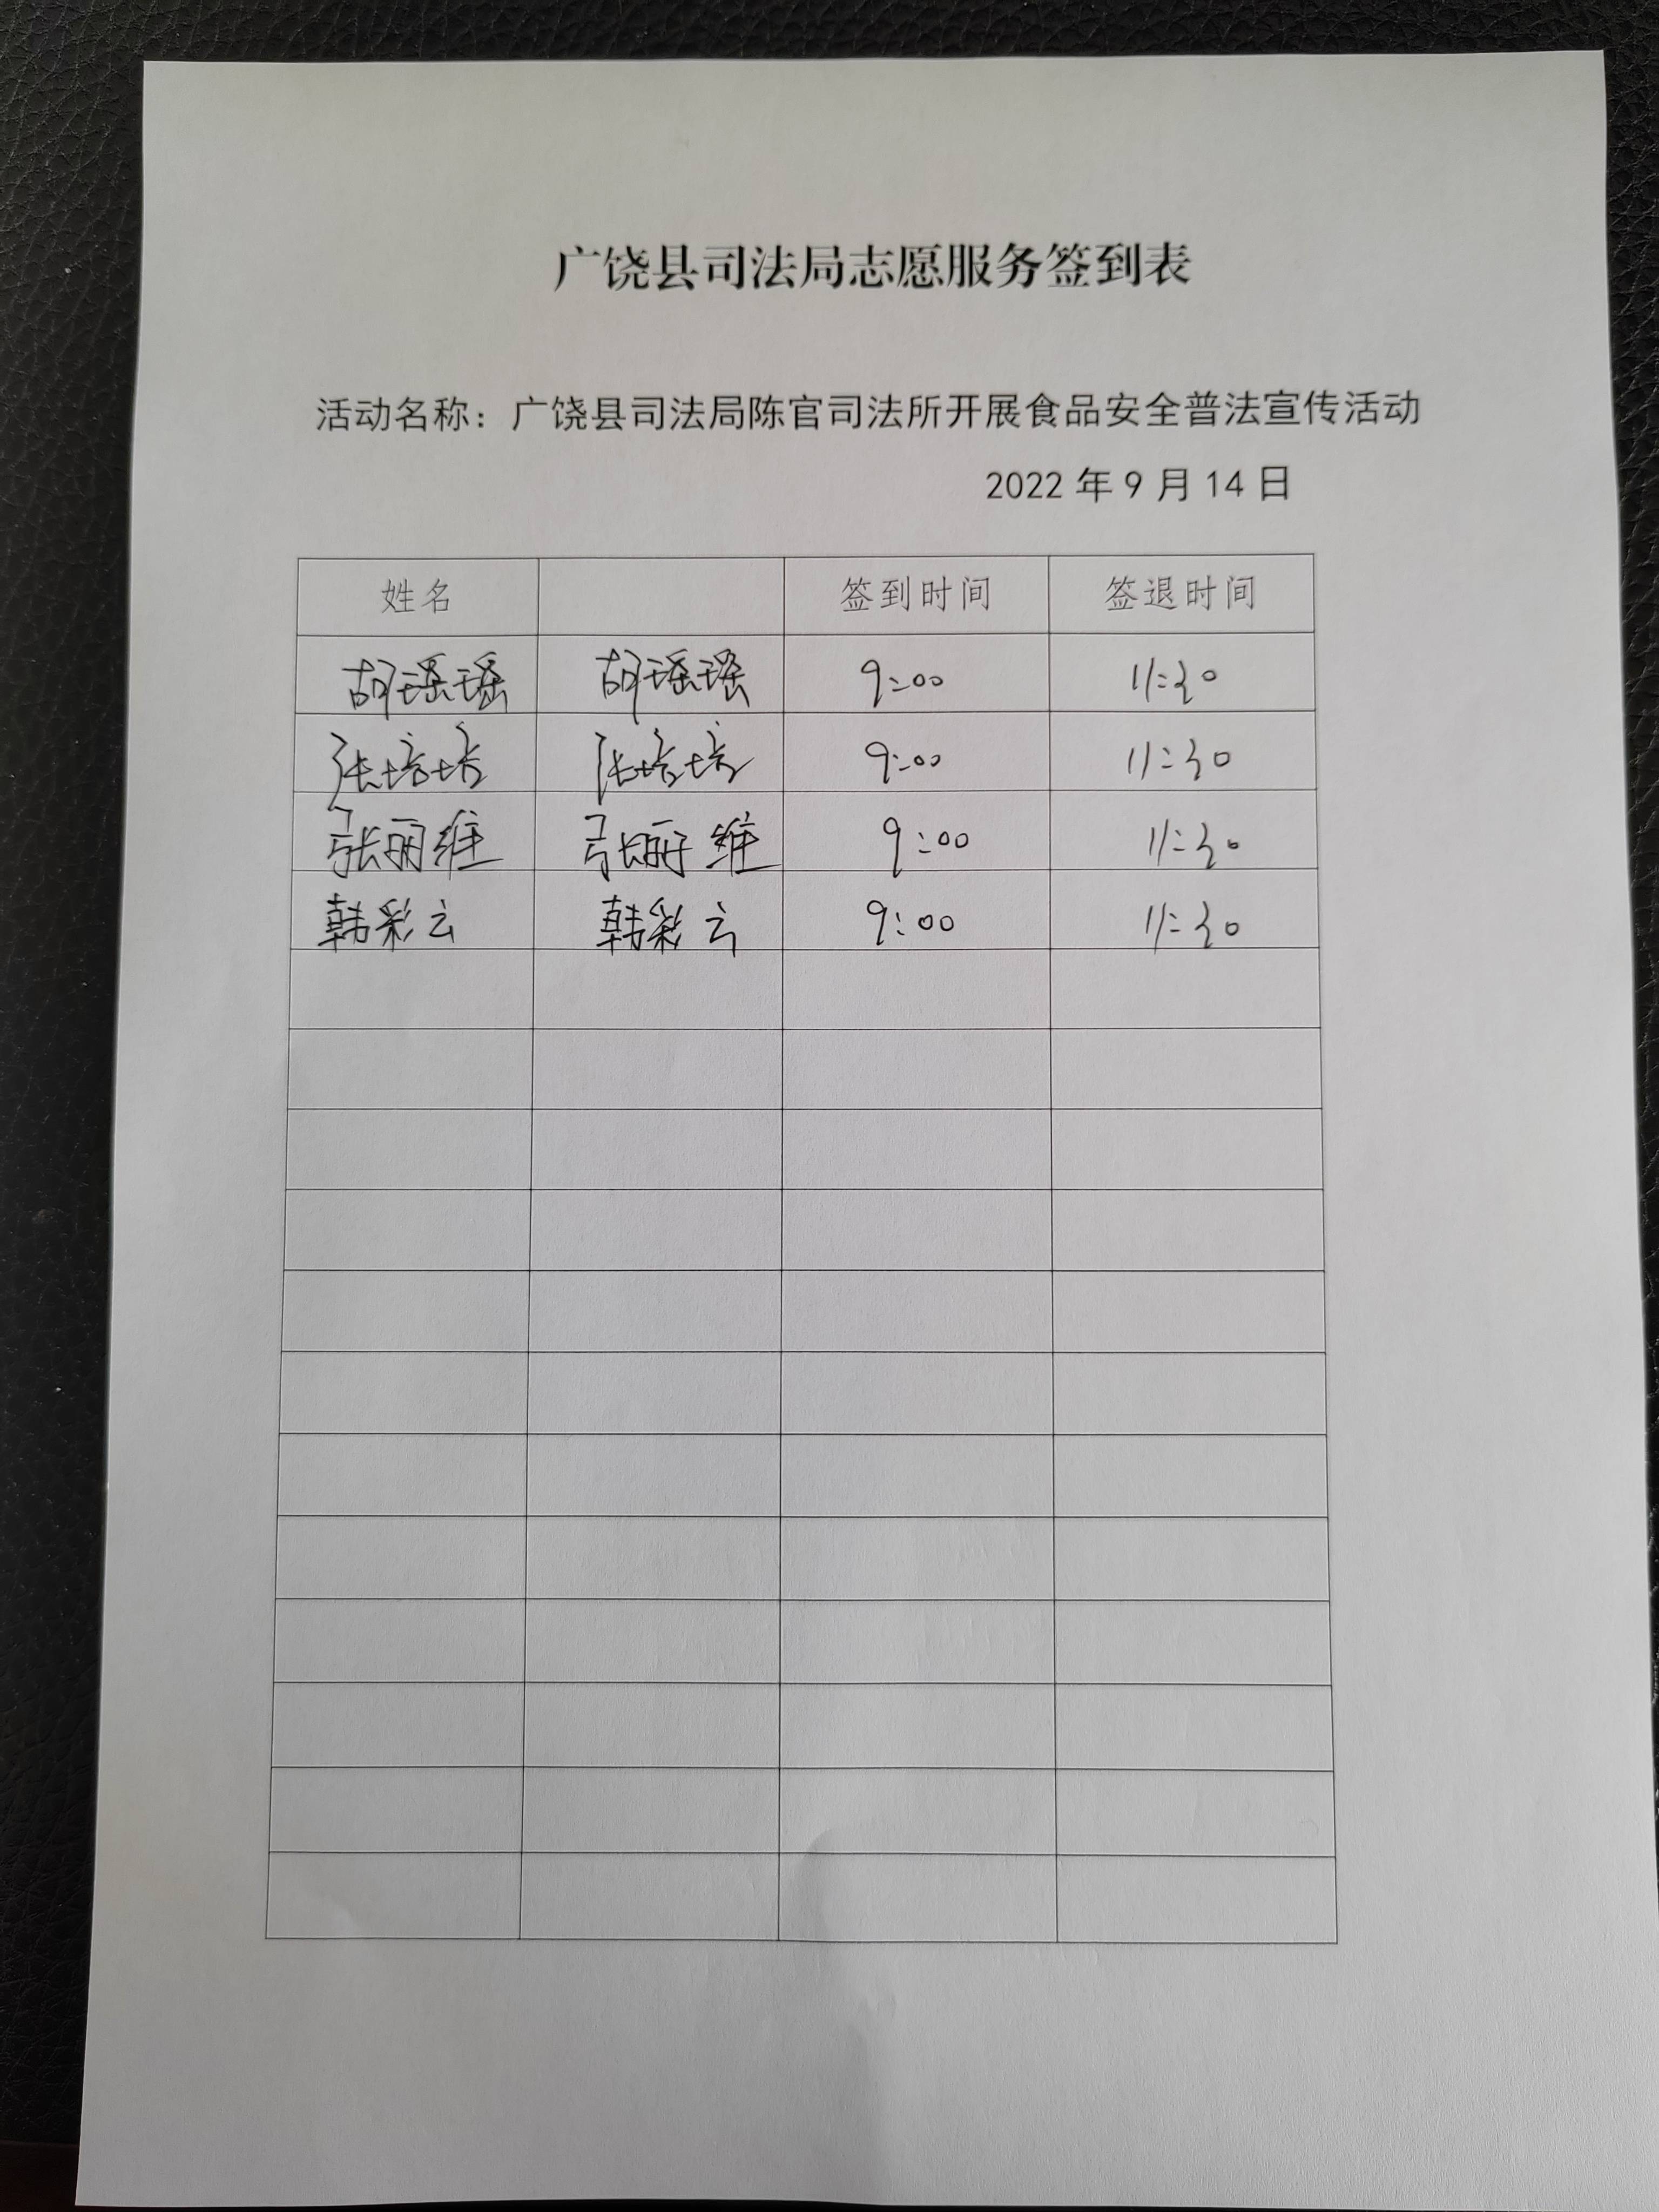 广饶县司法局志愿服务签到表
活动名称：广饶县司法局陈官司法所开展食品安全普法宣传活动
2022 年 9 月 14 日
姓名 签到时间 签退时间
胡瑶瑶 胡瑶瑶 9:00 11:30
张培培 张培培 9:00 11:30
张丽维 张丽维 9:00 11:30
韩彩云 韩彩云 9:00 11:30